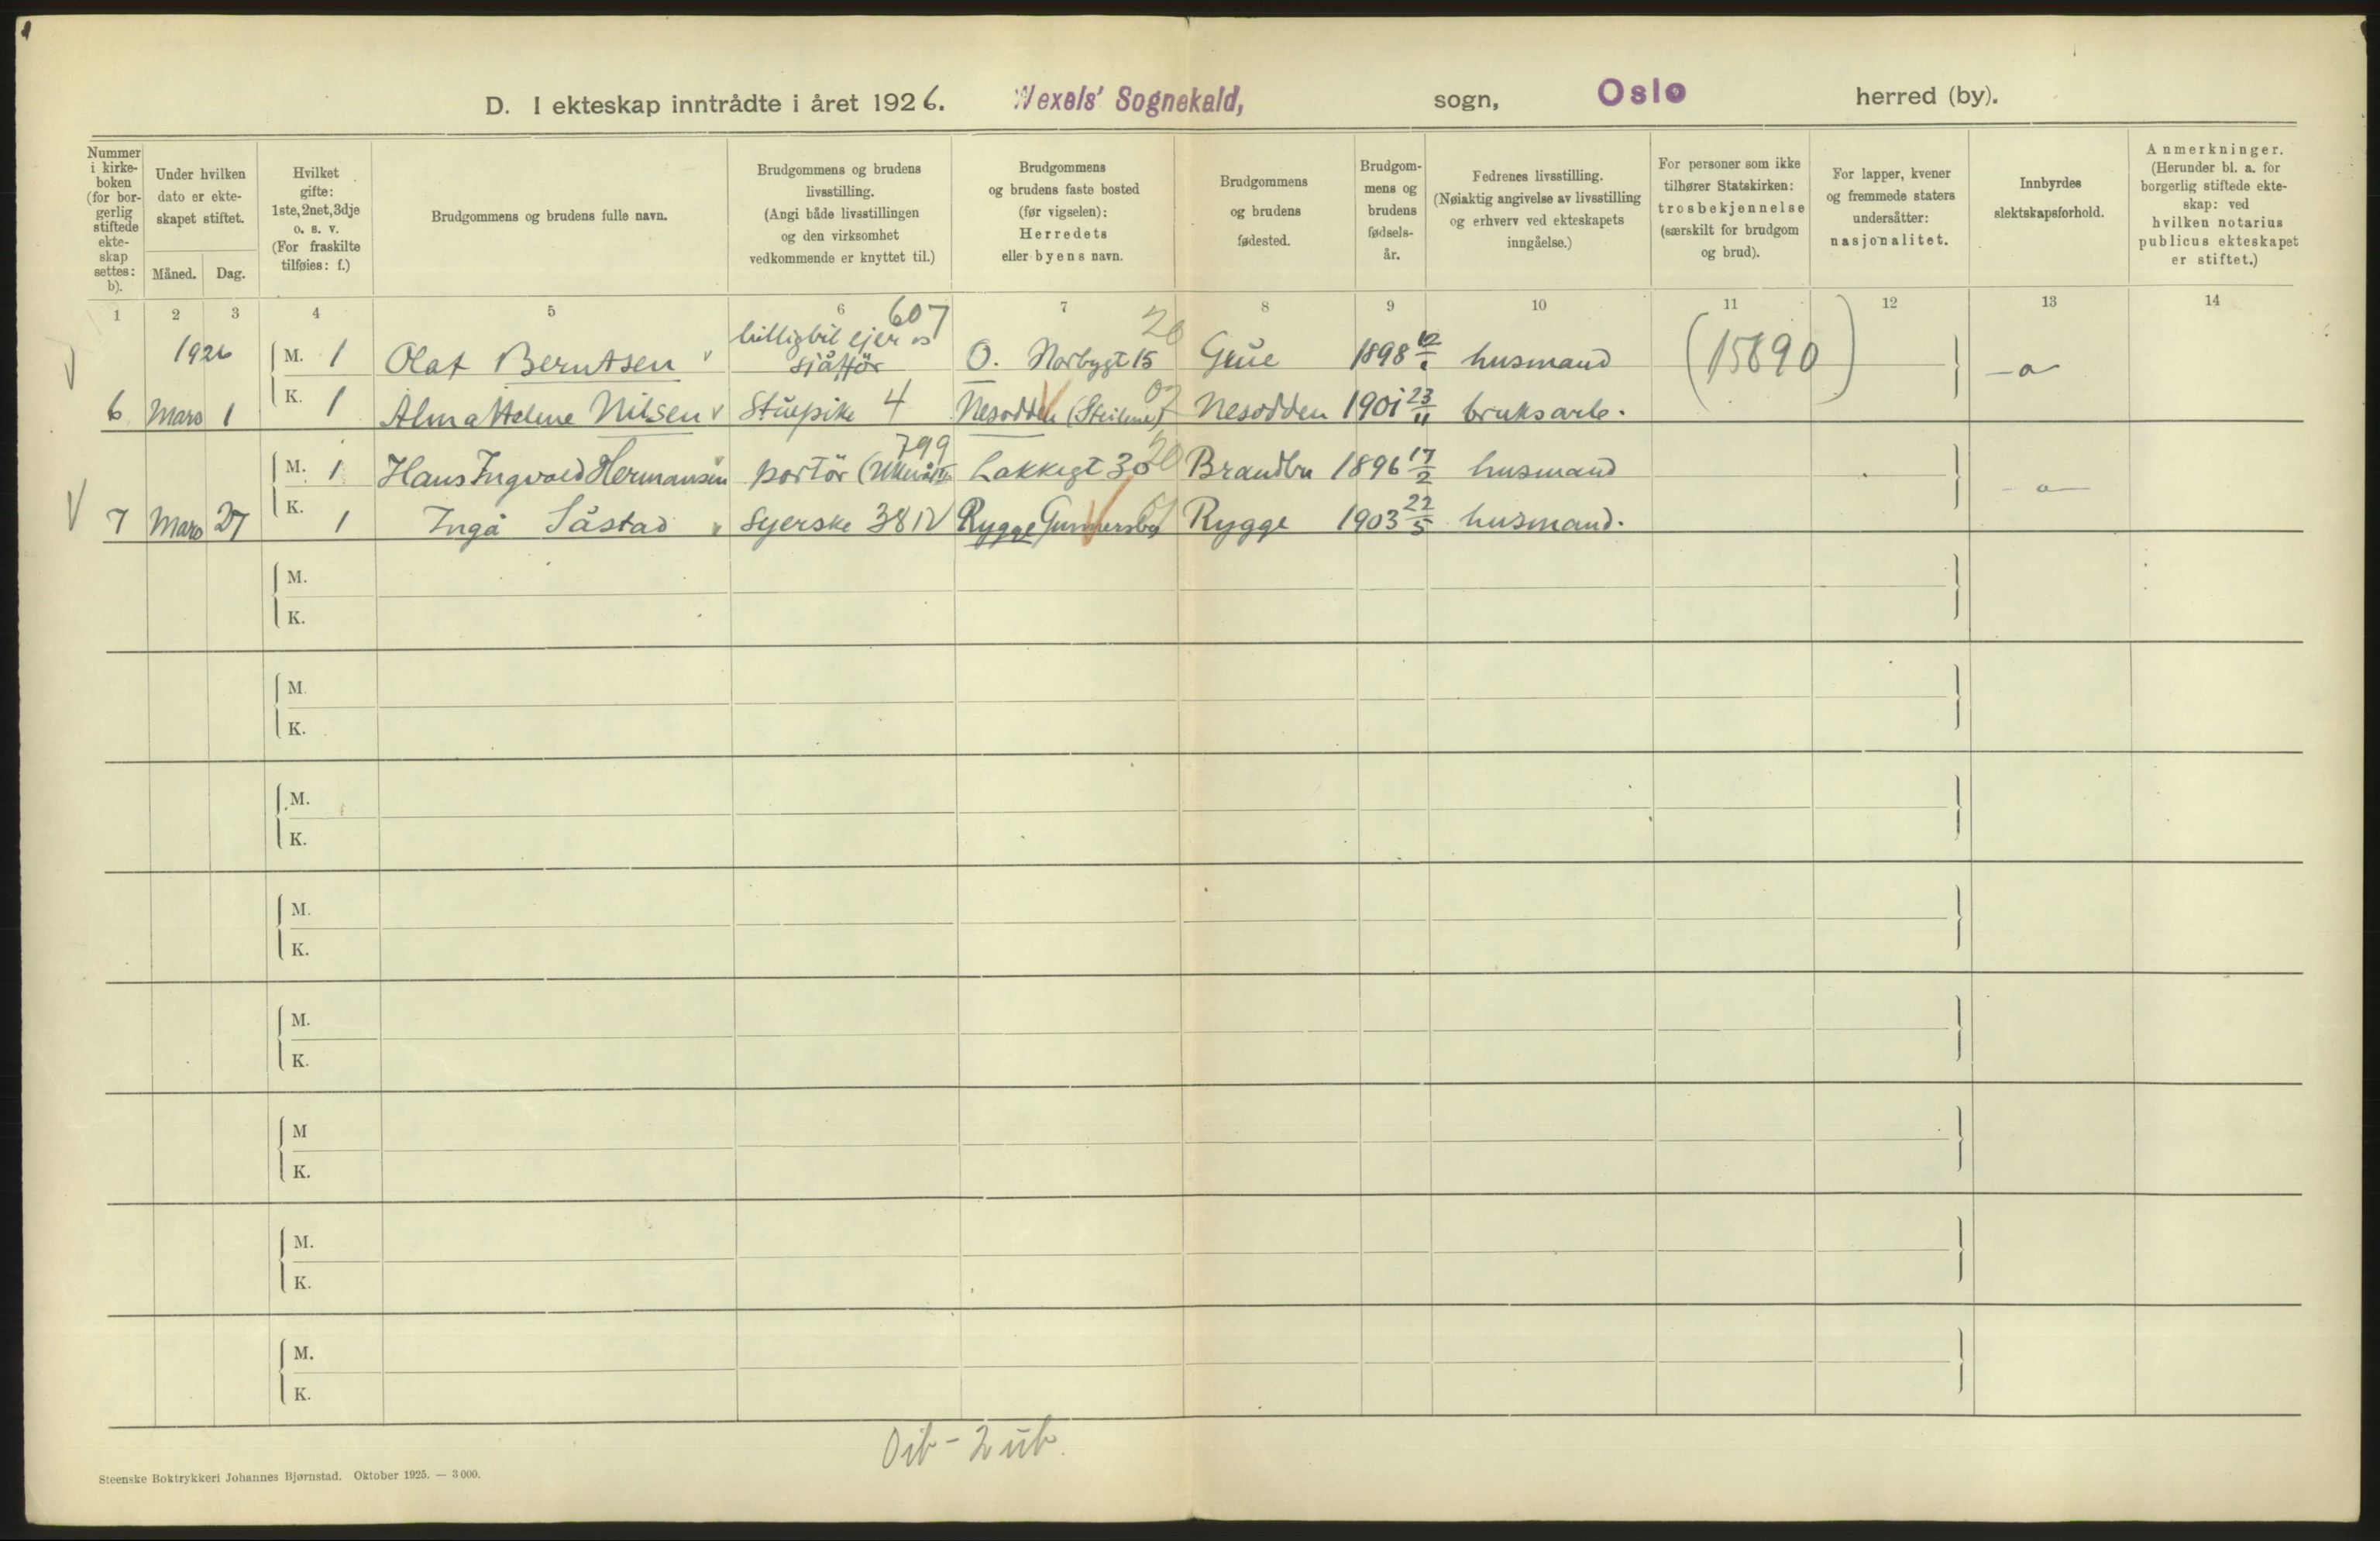 D. I ekteskap inntrådte i året 1926. Wexels' Sognekald, sogn, Oslo herred (by).
Nummer i kirkeboken (for borgerlig stiftede ekteskap settes: b).
Under hvilken dato er ekteskapet stiftet.
Måned. Dag.
Hvilket gifte: 1ste, 2net, 3dje o. s. v. (For fraskilte tilføies: f.)
Brudgommens og brudens fulle navn.
Brudgommens og brudens livsstilling. (Angi både livsstillingen og den virksomhet vedkommende er knyttet til.)
Brudgommens og brudens faste bosted (før vigselen): Herredets eller byens navn.
Brudgommens og brudens fødested.
Brudgommens og brudens fødselsår.
Fedrenes livsstilling. (Nøiaktig angivelse av livsstilling og erhverv ved ekteskapets inngåelse.)
For personer som ikke tilhører Statskirken: trosbekjennelse (særskilt for brudgom og brud).
For lapper, kvener og fremmede staters undersåtter: nasjonalitet.
Innbyrdes slektskapsforhold.
Anmerkninger. (Herunder bl. a. for borgerlig stiftede ekteskap: ved hvilken notarius publicus ekteskapet er stiftet.)
1 2 3 4 5 6 7 8 9 10 11 12 13 14
607 20
1926 M. 1 Olaf Berntsen v billigbil ejer os sjåfför O. Norbygt 15 Grue 1898 husmand (15890) -o-
07
6 Mars 1 K. 1 Alma Helene Nilsen v Stuepike 4 Nesodden (Steilene) Nesodden 1901 23/11 bruksarb.
799 20
M. 1 Hans Ingvald Hermansen portör Lakkegt 30 Brandbu 1896 17/2 husmand -o-
7 Mars 27 K. 1 Inga Såstad v Syerske 38 IV Rygge Rygge 1903 22/5 husmand.
M.
K.
M.
K.
M.
K.
M.
K.
M.
K.
M
K.
M.
K.
M.
K.
0 ib - 2 ub.
Steenske Boktrykkeri Johannes Bjørnstad. Oktober 1925. — 3 000.